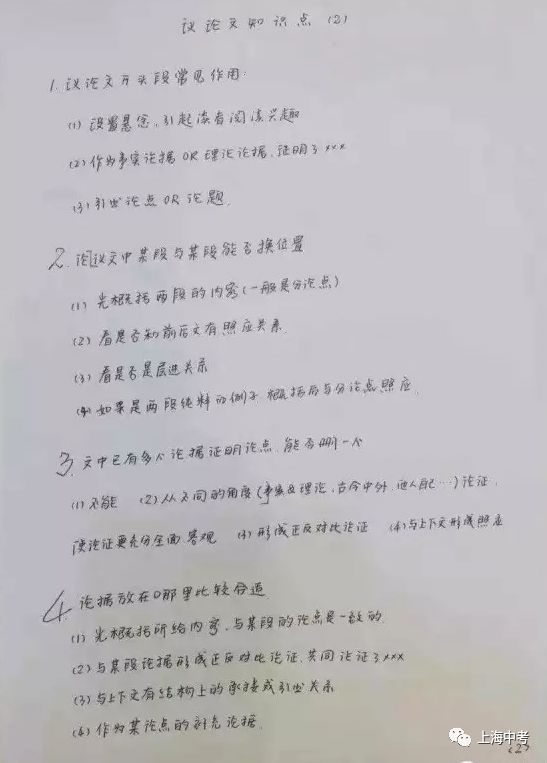 议论文知识点(2)
1. 议论文开头段常见作用:
(1) 设置悬念,引起读者阅读兴趣
(2) 作为事实论据 OR 理论论据,证明了xxx
(3) 引出论点 OR 论题.
2. 议文中某段与某段能否换位置
(1) 先概括两段的内容(一般是分论点)
(2) 看是否和前后文有照应关系.
(3) 看是否是层进关系
(4) 如果是两段纯料的例子,概括后与分论点照应.
3. 文中已有多个论据证明论点,能否删一个
(1) 不能 (2) 从不同的角度(事实&理论,古今中外,他人自己…)论证,
使论证更充分全面客观 (3) 形成正反对比论证 (4) 与上下文形成照应
4. 论据放在哪里比较合适
(1) 先概括所给内容,与某段的论点是一致的
(2) 与某段论据形成正反对比论证,共同论证了xxx
(3) 与上下文有结构上的承接或引出关系
(4) 作为某论点的补充论据.
上海中考
(2)